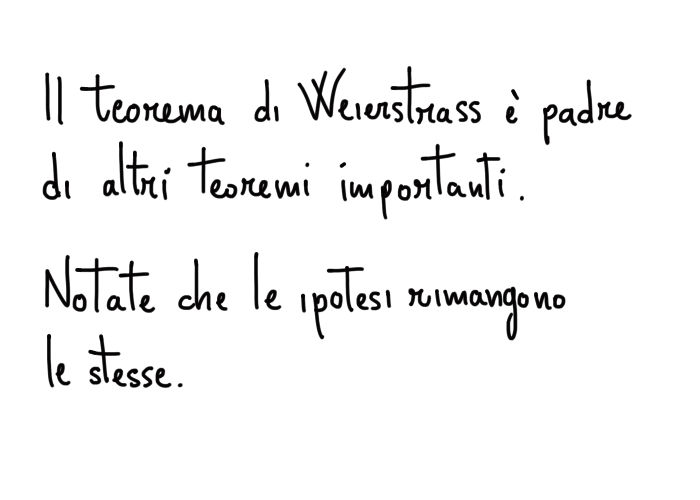 Il teorema di Weierstrass è padre
di altri teoremi importanti.
Notate che le ipotesi rimangono
le stesse.